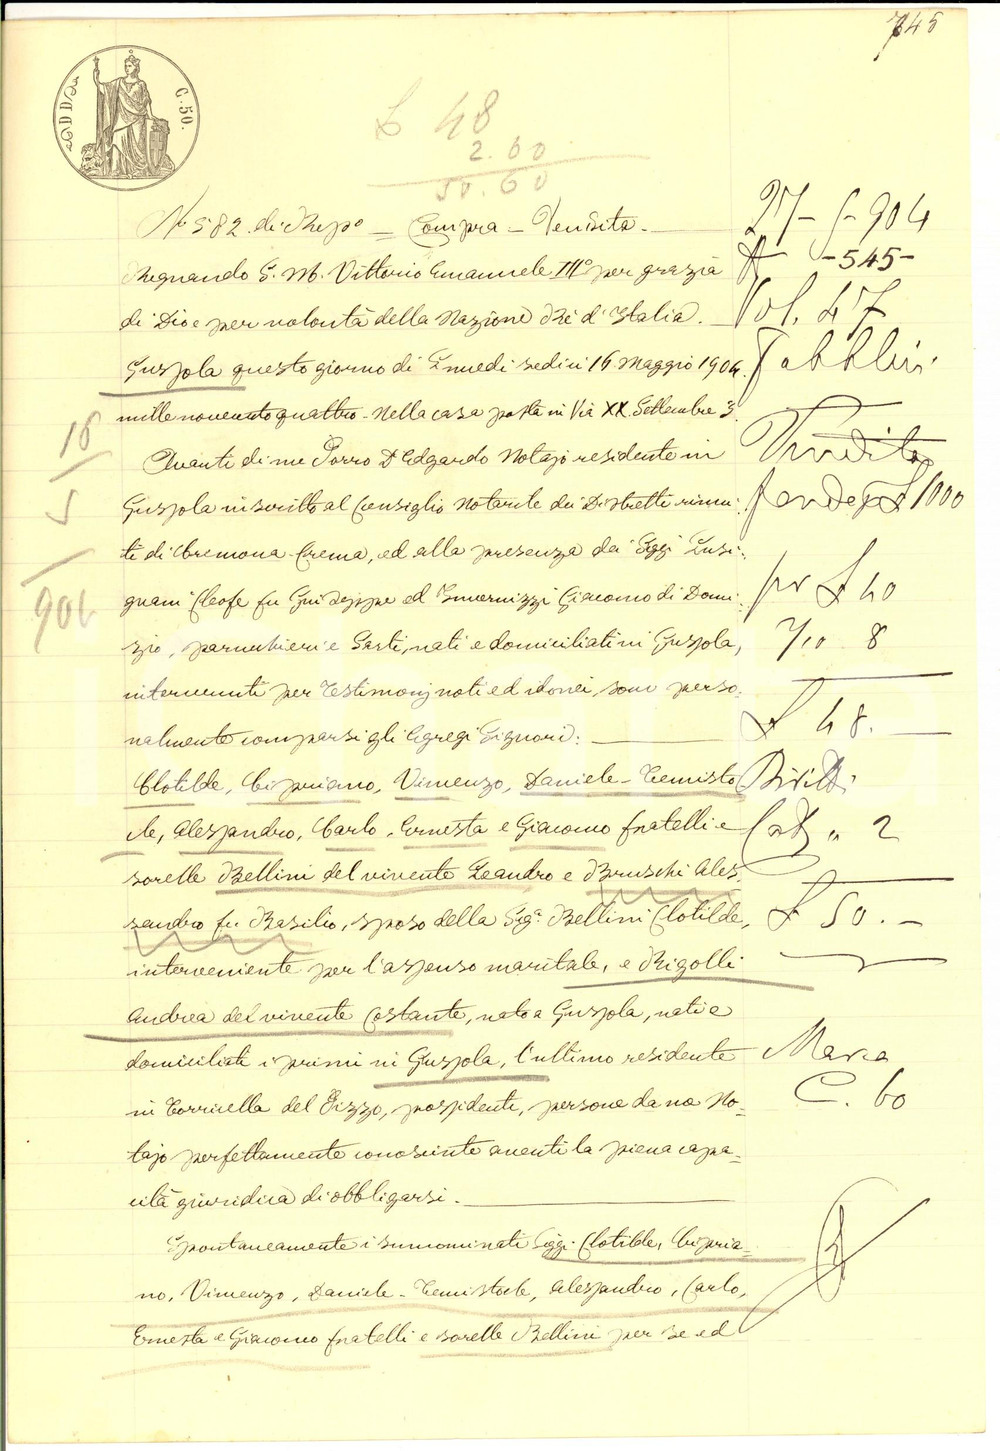 745
C. 50.
£ 48
2.60
50.60
No 582 di Rep° = Compra - Vendita.
Regnando S. M. Vittorio Emanuele III° per grazia
di Dio e per volontà della Nazione Re d'Italia.
Gussola questo giorno di Lunedì sedici 16 Maggio 1904
mille novecento quattro - nella casa posta in Via XX Settembre 3
Avanti di me Porro Dr Edgardo Notajo residente in
Gussola inscritto al Consiglio Notarile dei Distretti riuni-
ti di Cremona-Crema, ed alla presenza dei Sigg.i Lusi-
gnani Cleofe fu Guiseppe ed Invernizzi Giacomo di Domi-
zio, parucchieri e Sarti, nati e domiciliati in Gussola,
intervenuti per testimonj noti ed idonei, sono perso-
nalmente comparsi gli Egregi Signori:
Clotilde, Cipriano, Vincenzo, Daniele-Temisto
cle, Alessandro, Carlo, Ernesta e Giacomo fratelli e
sorelle Bellini del vivente Leandro e Bruschi Ales-
sandro fu Basilio, sposo della Sig.a Bellini Clotilde,
interveniente per l'assenso maritale, e Rigolli
Andrea del vivente Costante, nato a Gussola, nati e
domiciliati i primi in Gussola, l'ultimo residente
in Torricella del Pizzo, possidenti, persone da me No-
tajo perfettamente conosciute aventi la piena capa-
cità giuridica di obbligarsi.
Spontaneamente i sunnominati Sigg.i Clotilde, Cipria-
no, Vincenzo, Daniele-Temistocle, Alessandro, Carlo,
Ernesta e Giacomo fratelli e sorelle Bellini per se ed
16
5
904
27-5-904
-545-
Vol. 47
Fabbli
Vendita
1000
per £ 40
7/10 8
£ 48.
Diritti
Cat " 2
£ 50.-
Marca
C. 60